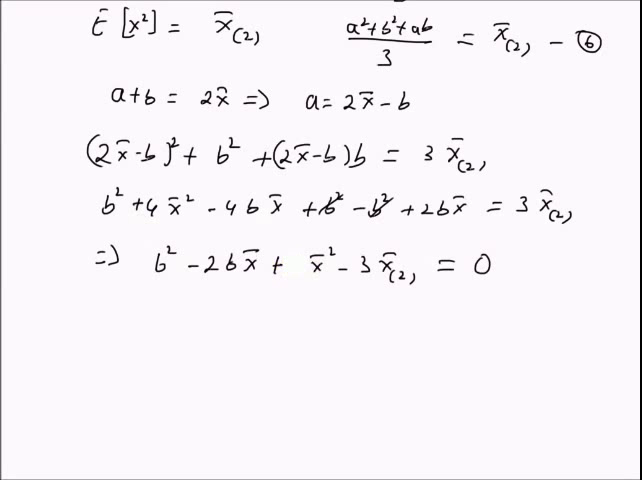 E[x²] = x̄₍₂₎   (a²+b²+ab)/3 = x̄₍₂₎ - ⑥
a+b = 2x̄ => a = 2x̄ - b
(2x̄-b)² + b² + (2x̄-b)b = 3 x̄₍₂₎
b² + 4x̄² - 4bx̄ + b² - b² + 2bx̄ = 3 x̄₍₂₎
=> b² - 2bx̄ + x̄² - 3x̄₍₂₎ = 0